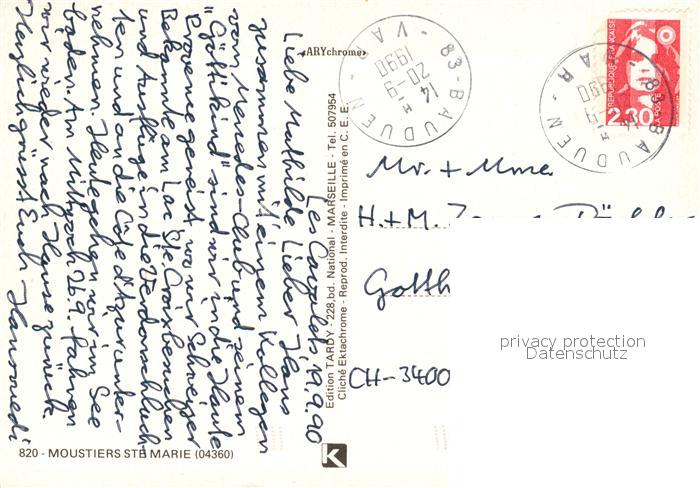 Les Cavalets 19.9.90
Liebe Mathilde Lieber Hans
zusammen mit einem Kollegen
vom Mercedes-Club und seinem
"Göttikind" sind wir in die Haute
Provence gereist wo wir Schweizer
Bekannte am Lac Ste Croix besuchen
und Ausflüge in die Verdonschluch-
ten und an die Côte d'Azur unter-
nehmen. Heute gehen wir im See
baden. Am Mittwoch 26.9. fahren
wir wieder nach Hause zurück.
Herzlich grüsst Euch Hansruedi
«ARYchrome»
Edition TARDY - 228, bd. National - MARSEILLE - Tel. 507954
Cliché Ektachrome - Reprod. Interdite - Imprimé en C. E. E.
820 - MOUSTIERS STE MARIE (04360)
K
83 - BAUDUEN - VAR -
14 H
20-9
1990
REPUBLIQUE FRANÇAISE
LA POSTE
2,30
83 - BAUDUEN - VAR -
Mr. + Mme.
H. + M.
Gotth
CH-3400
privacy protection
Datenschutz